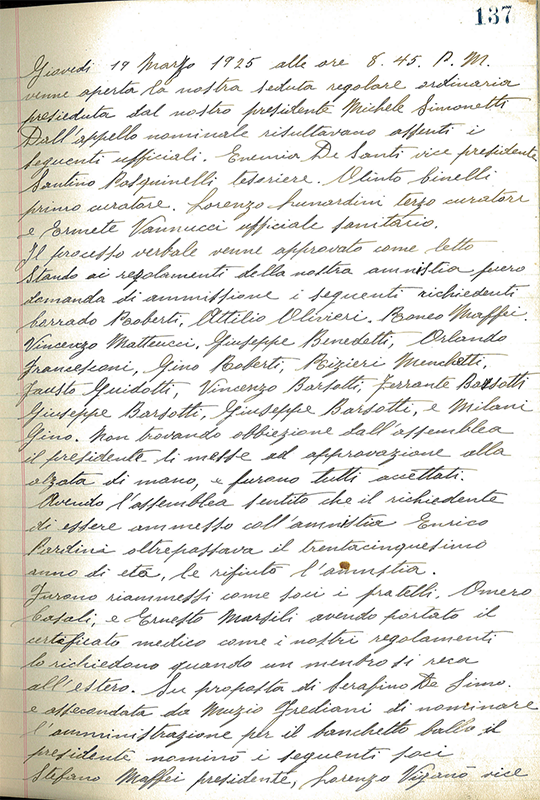 137
Giovedi 19 Marzo 1925 alle ore 8.45. P.M.
venne aperta la nostra seduta regolare ordinaria
presieduta dal nostro presidente Michele Simonetti
Dall'appello nominale risultavano assenti i
seguenti ufficiali. Enemia De Santi vice presidente
Santino Pasquinelli tesoriere. Olinto Cinelli
primo curatore. Lorenzo Lunardini terzo curatore
e Ermete Vannucci ufficiale sanitario.
Il processo verbale venne approvato come letto
Stando ai regolamenti della nostra amnistia fecero
domanda di ammissione i seguenti richiedenti
Corrado Roberti, Attilio Olivieri. Romeo Maffei.
Vincenzo Matteucci. Giuseppe Benedetti, Orlando
Francesconi, Gino Roberti, Rizieri Menchetti,
Fausto Guidotti, Vincenzo Barsotti, Ferrante Barsotti
Giuseppe Barsotti, Giuseppe Barsotti, e Milani
Gino. Non trovando obbiezione dall'assemblea
il presidente li messe ad approvazione alla
alzata di mano, e furono tutti accettati.
Avendo l'assemblea sentito che il richiedente
di essere ammesso coll'amnistia Enrico
Pardini oltrepassava il trentacinquesimo
anno di etá, le rifiuto l'amnstia.
Furono riammessi come soci i fratelli. Omero
Casali, e Ernesto Marsili avendo portato il
certificato medico come i nostri regolamenti
lo richiedono quando un menbro si reca
all'estero. Su proposta di Serafino De Simo.
e assecondata da Muzio Frediani di nominare
l'amministrazione per il banchetto ballo il
presidente nominó i seguenti soci
Stefano Maffei presidente, Lorenzo Viganó vice